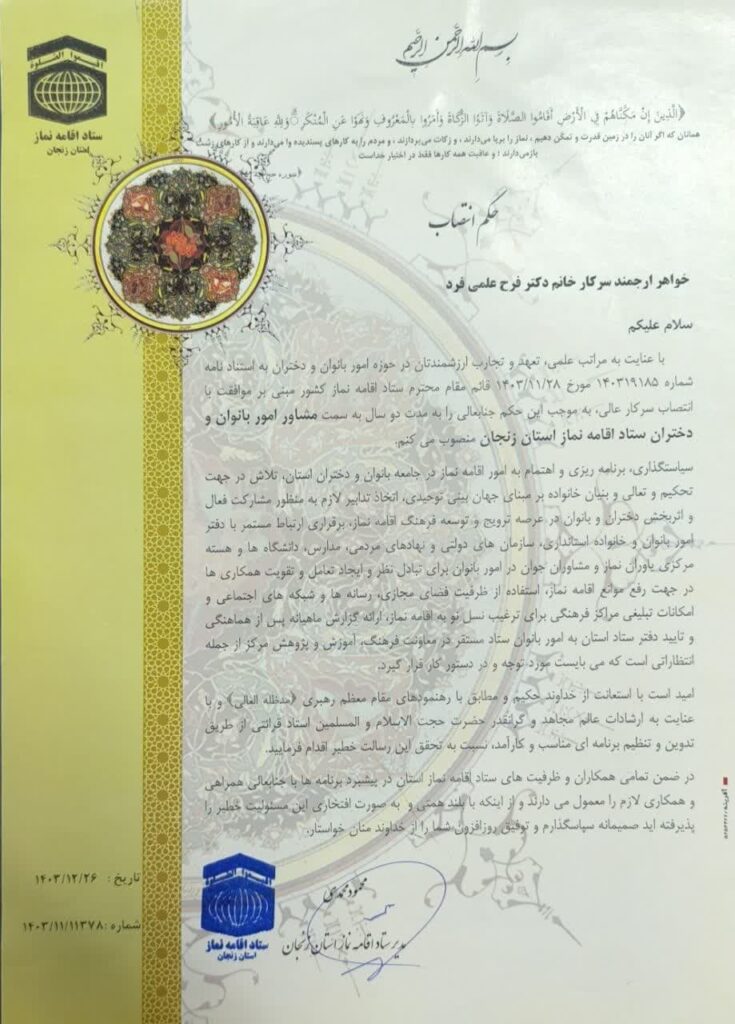 بسم الله الرحمن الرحیم
اقیموا الصلوة
ستاد اقامه نماز
استان زنجان
﴿الَّذِينَ إِنْ مَكَّنَّاهُمْ فِي الْأَرْضِ أَقَامُوا الصَّلَاةَ وَآتَوُا الزَّكَاةَ وَأَمَرُوا بِالْمَعْرُوفِ وَنَهَوْا عَنِ الْمُنْكَرِ ۗ وَلِلَّهِ عَاقِبَةُ الْأُمُورِ﴾
همانان که اگر آنان را در زمین قدرت و تمکن دهیم ، نماز را برپا می‌دارند ، و زکات می‌پردازند ، و مردم را به کارهای پسندیده وا می‌دارند و از کارهای زشت
بازمی‌دارند ؛ و عاقبت همه کارها فقط در اختیار خداست
حکم انتصاب
خواهر ارجمند سرکار خانم دکتر فرح علمی فرد
سلام علیکم
با عنایت به مراتب علمی، تعهد و تجارب ارزشمندتان در حوزه امور بانوان و دختران به استناد نامه
شماره ۱۴۰۳۱۹۱۸۵ مورخ ۱۴۰۳/۱۱/۲۸ قائم مقام محترم ستاد اقامه نماز کشور مبنی بر موافقت با
انتصاب سرکار عالی، به موجب این حکم جنابعالی را به مدت دو سال به سمت مشاور امور بانوان و
دختران ستاد اقامه نماز استان زنجان منصوب می کنم.
سیاستگذاری، برنامه ریزی و اهتمام به امور اقامه نماز در جامعه بانوان و دختران استان، تلاش در جهت
تحکیم و تعالی و بنیان خانواده بر مبنای جهان بینی توحیدی، اتخاذ تدابیر لازم به منظور مشارکت فعال
و اثربخش دختران و بانوان در عرصه ترویج و توسعه فرهنگ اقامه نماز، برقراری ارتباط مستمر با دفتر
امور بانوان و خانواده استانداری، سازمان های دولتی و نهادهای مردمی، مدارس، دانشگاه ها و هسته
مرکزی یاوران نماز و مشاوران جوان در امور بانوان برای تبادل نظر و ایجاد تعامل و تقویت همکاری ها
در جهت رفع موانع اقامه نماز، استفاده از ظرفیت فضای مجازی، رسانه ها و شبکه های اجتماعی و
امکانات تبلیغی مراکز فرهنگی برای ترغیب نسل نو به اقامه نماز، ارائه گزارش ماهیانه پس از هماهنگی
و تایید دفتر ستاد استان به امور بانوان ستاد مستقر در معاونت فرهنگ، آموزش و پژوهش مرکز از جمله
انتظاراتی است که می بایست مورد توجه و در دستور کار قرار گیرد.
امید است با استعانت از خداوند حکیم و مطابق با رهنمودهای مقام معظم رهبری (مدظله العالی) و با
عنایت به ارشادات عالم مجاهد و گرانقدر حضرت حجت الاسلام و المسلمین استاد قرائتی از طریق
تدوین و تنظیم برنامه ای مناسب و کارآمد، نسبت به تحقق این رسالت خطیر اقدام فرمایید.
در ضمن تمامی همکاران و ظرفیت های ستاد اقامه نماز استان در پیشبرد برنامه ها با جنابعالی همراهی
و همکاری لازم را معمول می دارند و از اینکه با بلند همتی و به صورت افتخاری این مسئولیت خطیر را
پذیرفته اید صمیمانه سپاسگذارم و توفیق روزافزون شما را از خداوند منان خواستار.
محمود محمدی
مدیر ستاد اقامه نماز استان زنجان
ستاد اقامه نماز
استان زنجان
تاریخ : ۱۴۰۳/۱۲/۲۶
شماره :۱۴۰۳/۱۱/۱۱۳۷۸